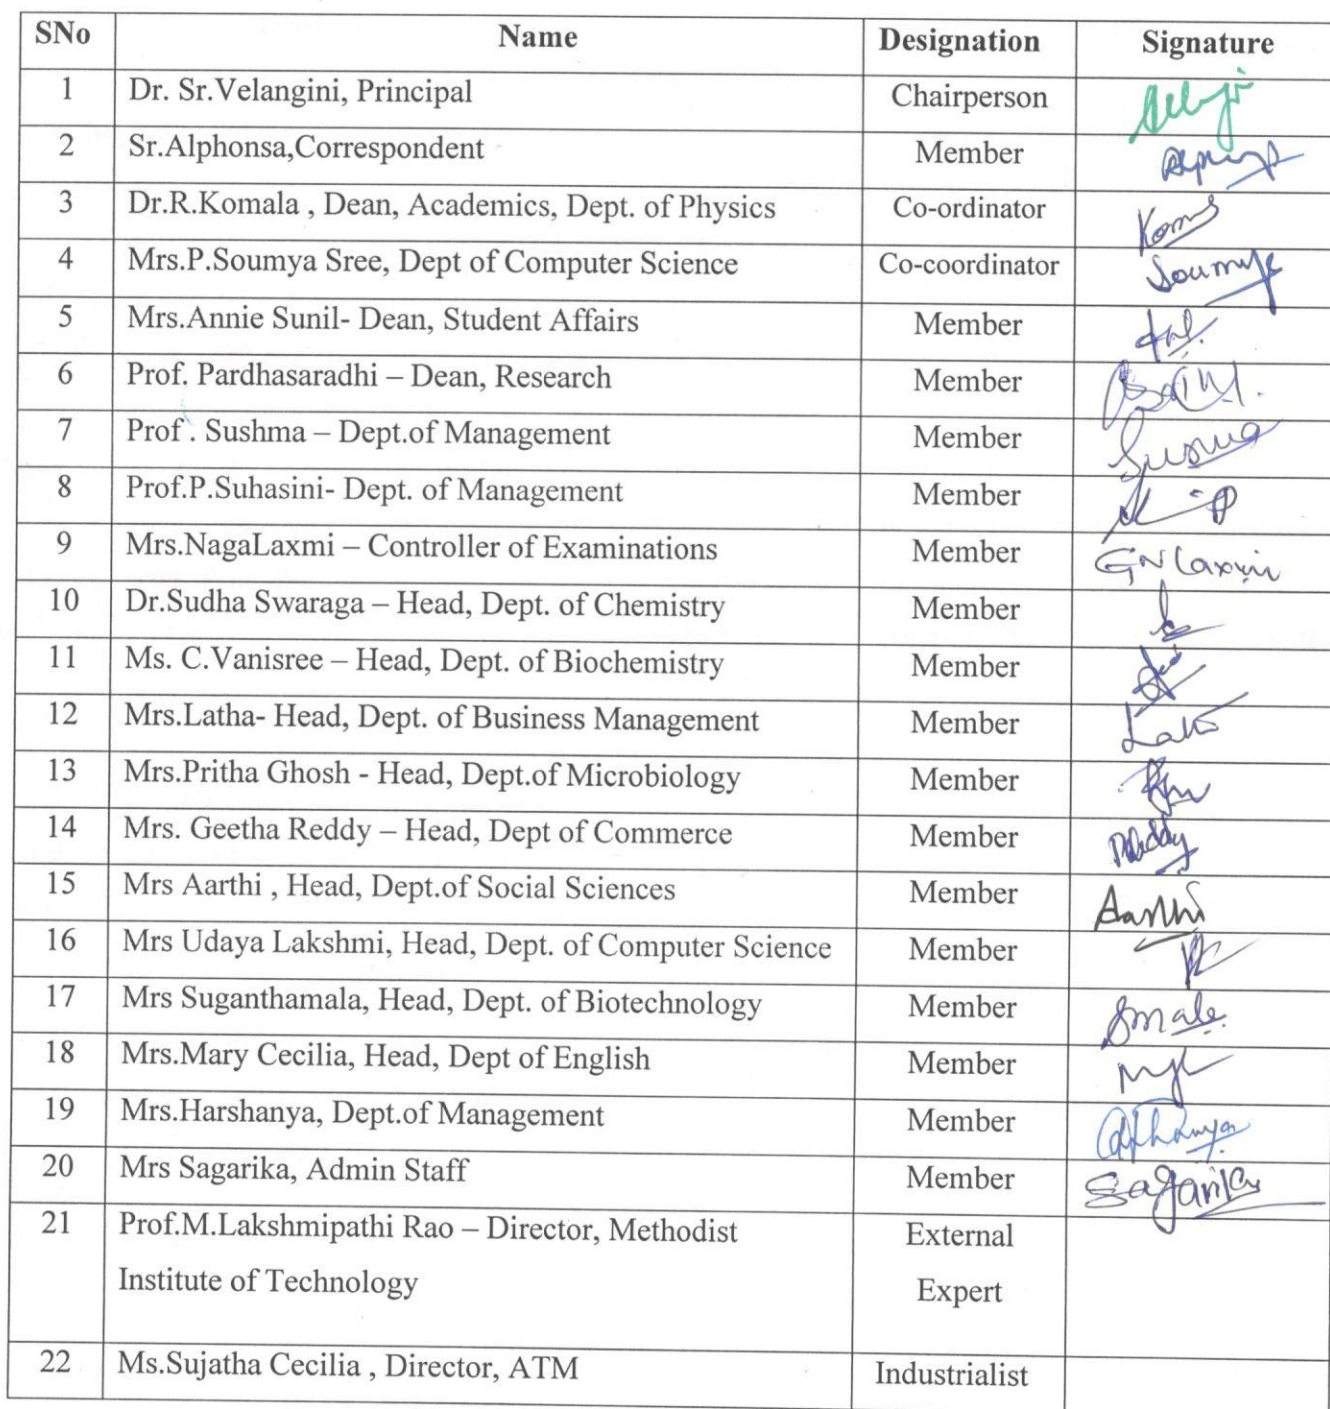 SNo Name Designation Signature
1 Dr. Sr.Velangini, Principal Chairperson
2 Sr.Alphonsa,Correspondent Member
3 Dr.R.Komala , Dean, Academics, Dept. of Physics Co-ordinator
4 Mrs.P.Soumya Sree, Dept of Computer Science Co-coordinator Soumya
5 Mrs.Annie Sunil- Dean, Student Affairs Member
6 Prof. Pardhasaradhi – Dean, Research Member
7 Prof . Sushma – Dept.of Management Member
8 Prof.P.Suhasini- Dept. of Management Member
9 Mrs.NagaLaxmi – Controller of Examinations Member GN Laxmi
10 Dr.Sudha Swaraga – Head, Dept. of Chemistry Member
11 Ms. C.Vanisree – Head, Dept. of Biochemistry Member
12 Mrs.Latha- Head, Dept. of Business Management Member
13 Mrs.Pritha Ghosh - Head, Dept.of Microbiology Member
14 Mrs. Geetha Reddy – Head, Dept of Commerce Member
15 Mrs Aarthi , Head, Dept.of Social Sciences Member Aarthi
16 Mrs Udaya Lakshmi, Head, Dept. of Computer Science Member
17 Mrs Suganthamala, Head, Dept. of Biotechnology Member
18 Mrs.Mary Cecilia, Head, Dept of English Member
19 Mrs.Harshanya, Dept.of Management Member
20 Mrs Sagarika, Admin Staff Member Sagarika
21 Prof.M.Lakshmipathi Rao – Director, Methodist External
Institute of Technology Expert
22 Ms.Sujatha Cecilia , Director, ATM Industrialist